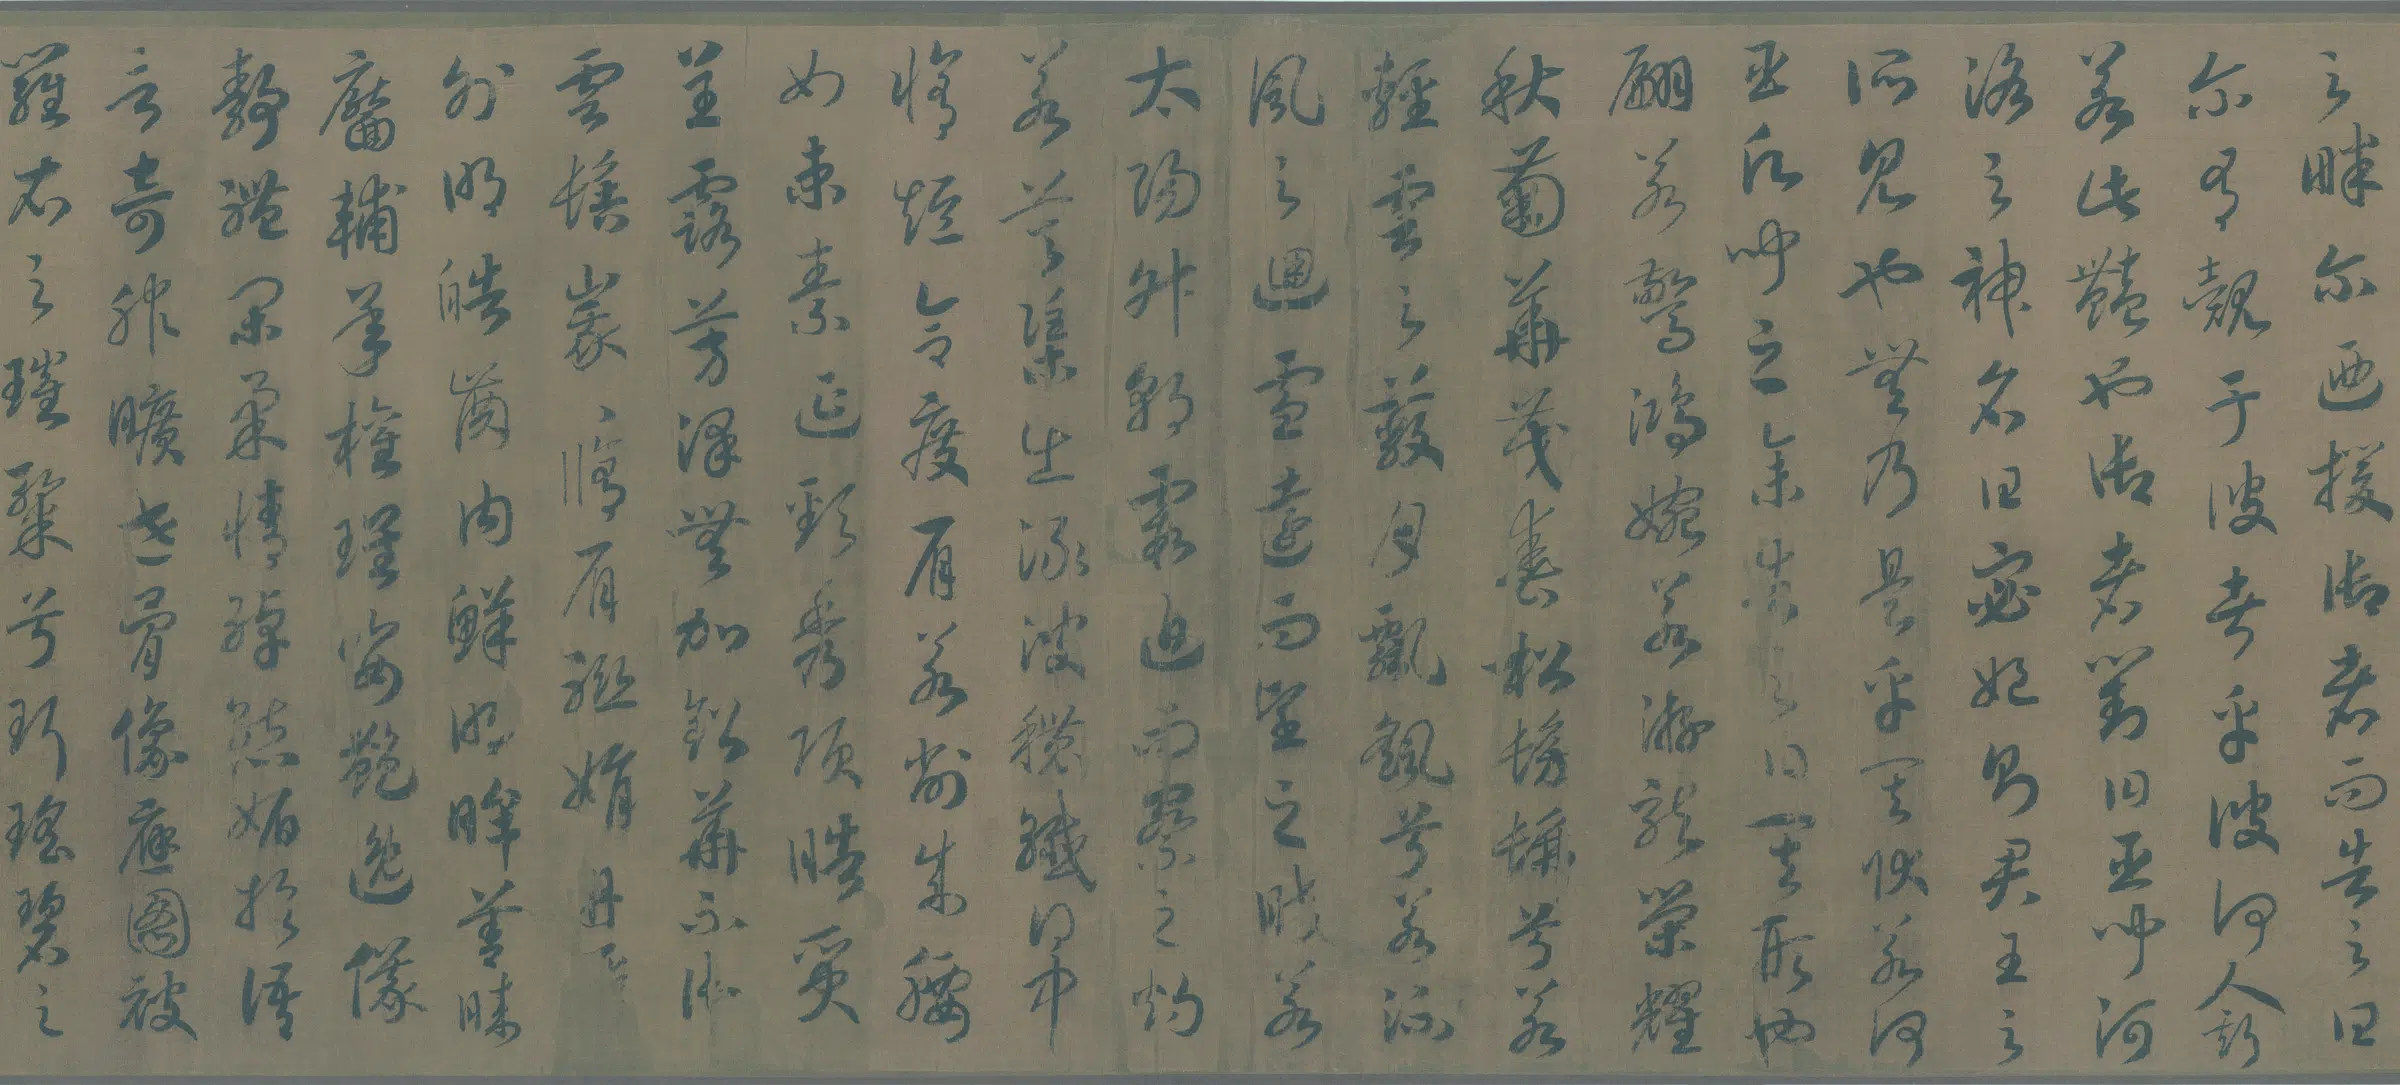 之畔尔迺援御者而告之曰
尔有覿于彼者乎彼何人斯
若此豔也御者對曰臣聞河
洛之神名曰宓妃則君王之
所見也無乃是乎其狀若何
臣願聞之余告之曰其形也
翩若驚鴻婉若游龍榮耀
秋菊華茂春松髣髴兮若
輕雲之蔽月飄颻兮若流
風之迴雪遠而望之皎若
太陽升朝霞迫而察之灼
若芙蕖出淥波穠纖得中
脩短合度肩若削成腰
如束素延頸秀項皓質
呈露芳澤無加鉛華不御
雲髻峩々脩眉聯娟丹唇
外朗皓齒内鮮明眸善睞
靨輔承權瓌姿豔逸儀
靜體閑柔情綽態媚於語
言奇服曠世骨像應圖被
羅衣之璀粲兮珥瑤碧之